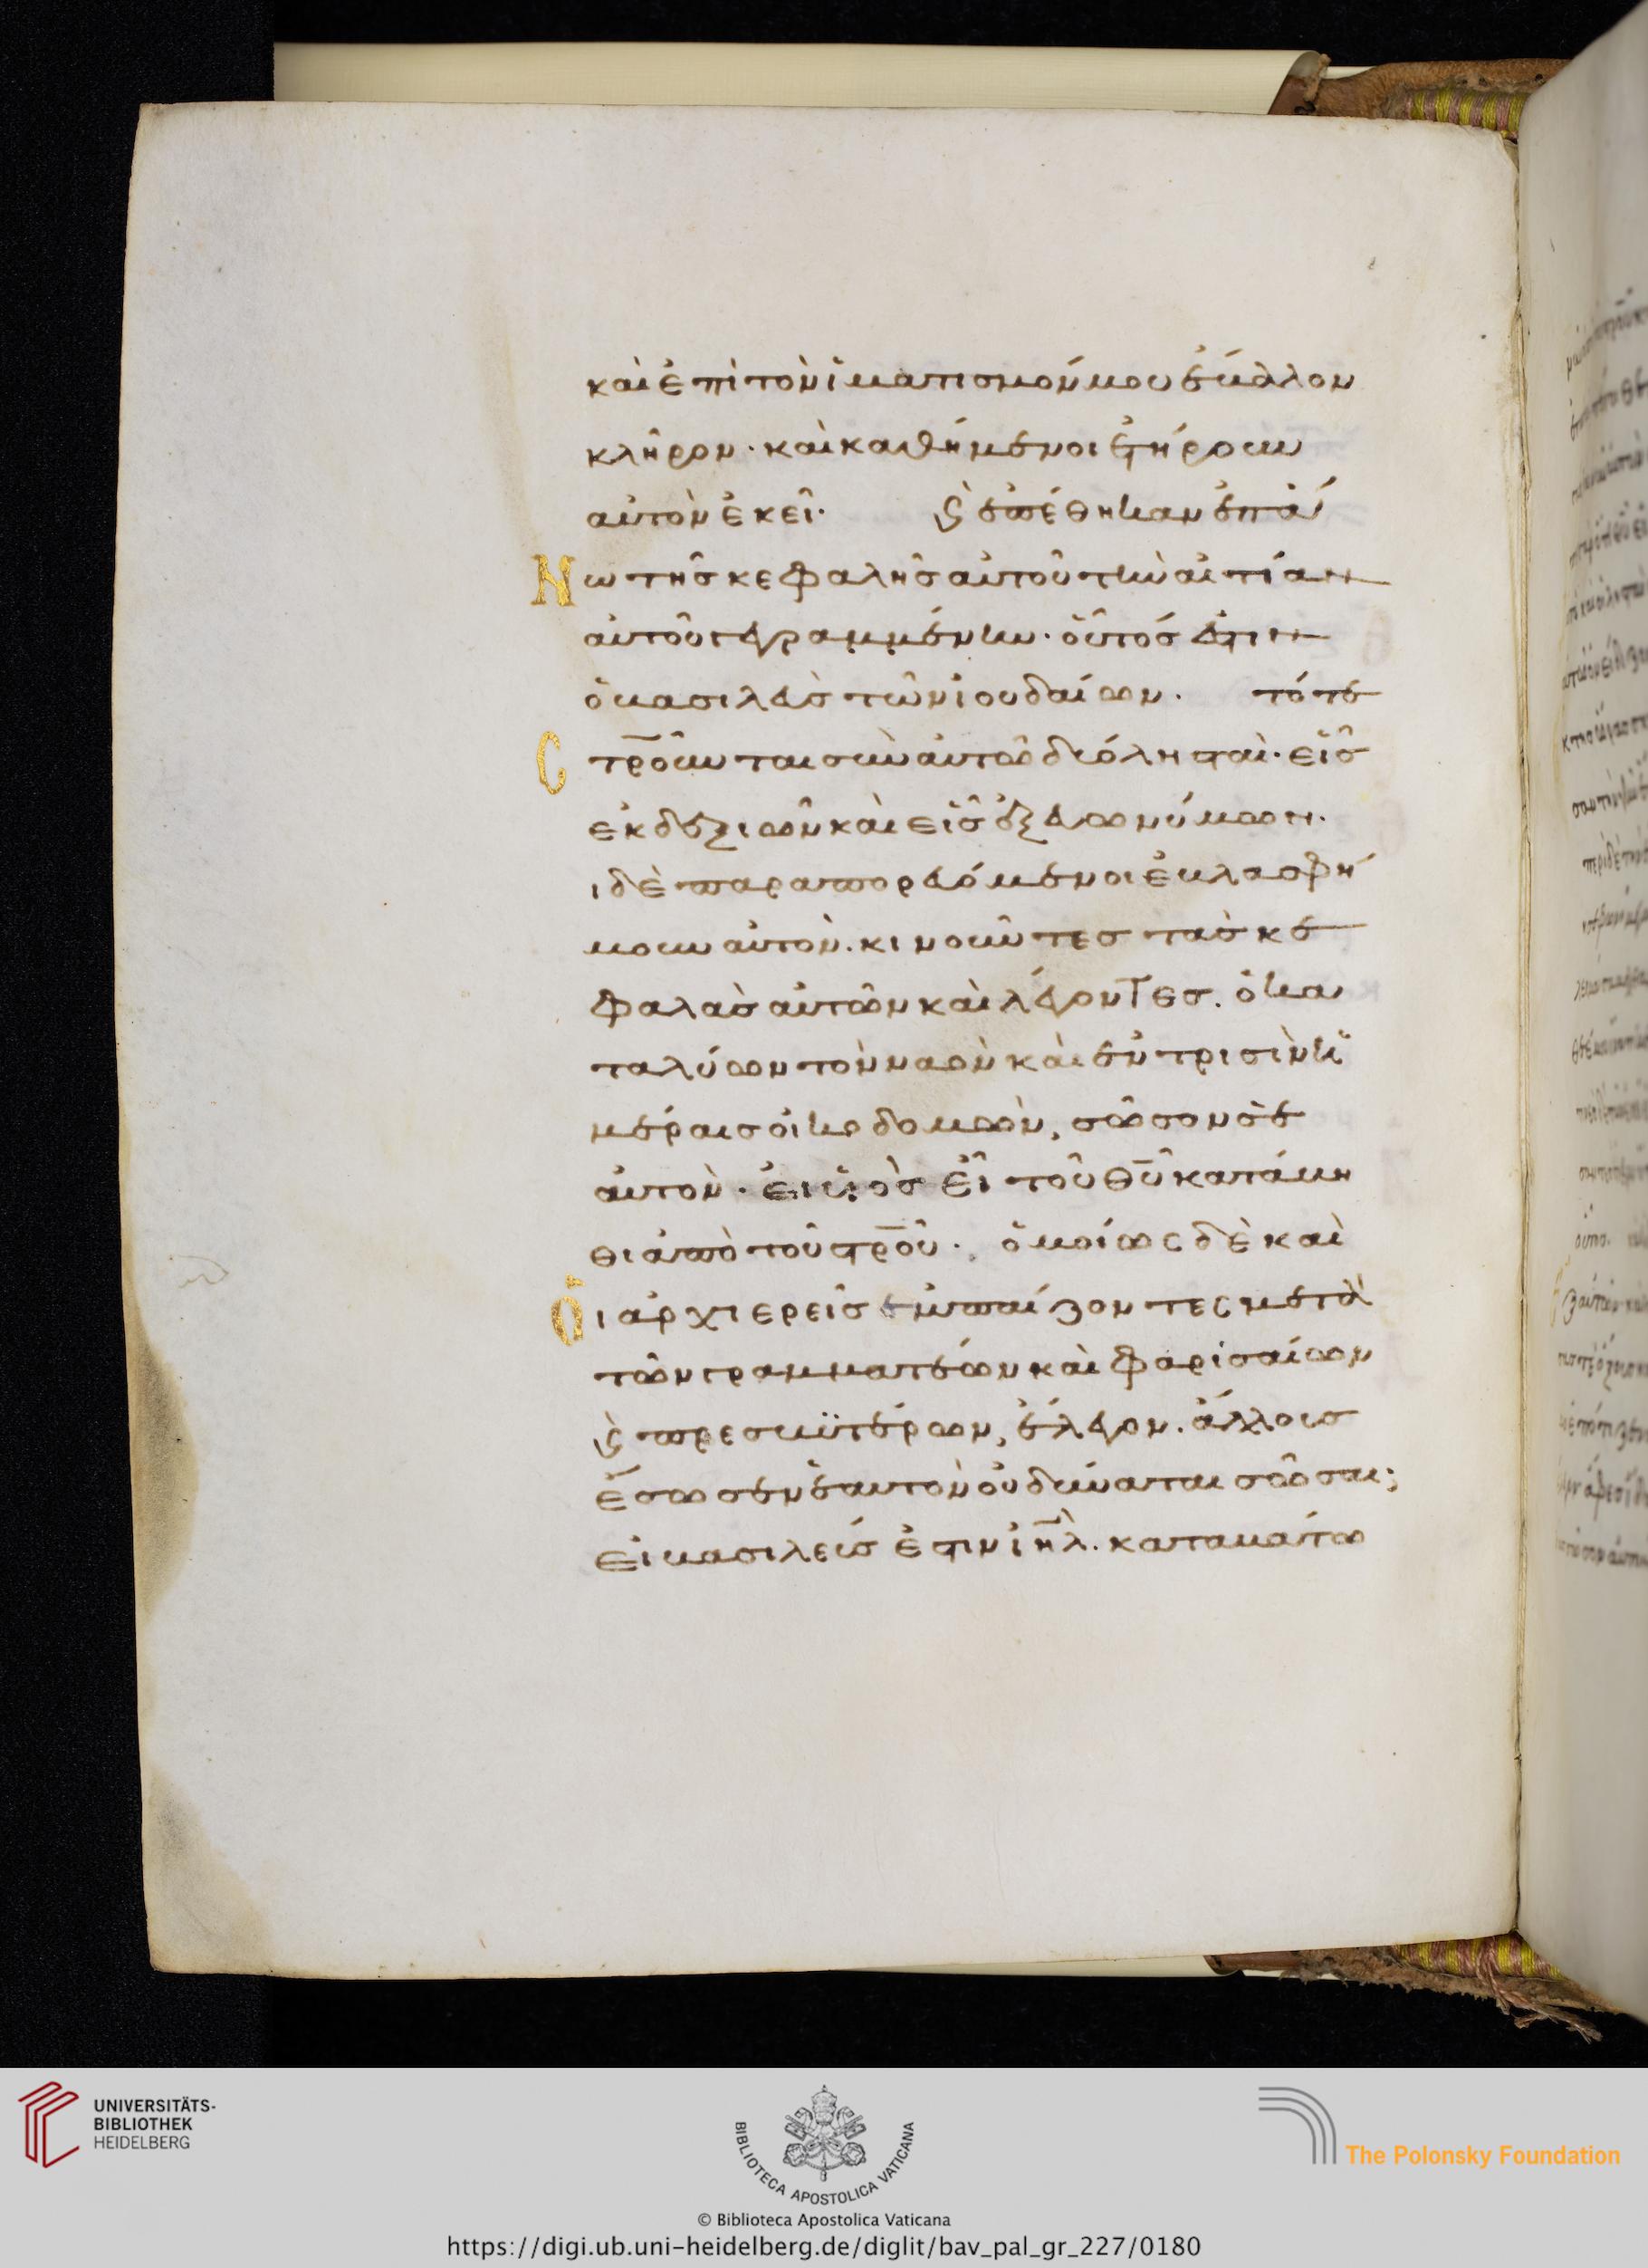 καὶ ἐπὶ τὸν ἱματισμόν μου ἔβαλον
κλῆρον · καὶ καθήμενοι ἐτήρουν
αὐτὸν ἐκεῖ · ϗ ἐπέθηκαν ἐπά
Νω τῆς κεφαλῆς αὐτοῦ τὴν αἰτίαν
αὐτοῦ γεγραμμένην · οὗτός ἐστιν
ὁ βασιλεὺς τῶν ἰουδαίων · τότε
Στρο̅ῦνται σὺν αὐτῶ δύο λησταὶ · εἷς
ἐκ δεξιῶν καὶ εἷς ἐξ εὐωνύμων ·
ι δὲ παραπορευόμενοι ἐβλασφή
μουν αὐτὸν · κινοῦντες τὰς κε
φαλὰς αὐτῶν καὶ λέγοντες · ὁ κα
ταλύων τὸν ναὸν καὶ ἐν τρισὶν ἡ
μέραις οἰκοδομῶν, σῶσον σε
αὐτὸν · εἰ υἱὸς εἶ τοῦ θ̅υ̅ κατάβη
θι ἀπὸ τοῦ στρ̅οῦ · ὁμοίως δὲ καὶ
Οἱ ἀρχιερεῖς ἐμπαίζοντες μετὰ
τῶν γραμματέων καὶ φαρισαίων
ϗ πρεσβϋτέρων, ἔλεγον · ἄλλους
ἔσωσεν ἑαυτὸν οὐ δύναται σῶσαι;
εἰ βασιλεύς ἐστιν ἰη̅λ · καταβάτω
UNIVERSITÄTS-
BIBLIOTHEK
HEIDELBERG
BIBLIOTECA APOSTOLICA VATICANA
The Polonsky Foundation
© Biblioteca Apostolica Vaticana
https://digi.ub.uni-heidelberg.de/diglit/bav_pal_gr_227/0180